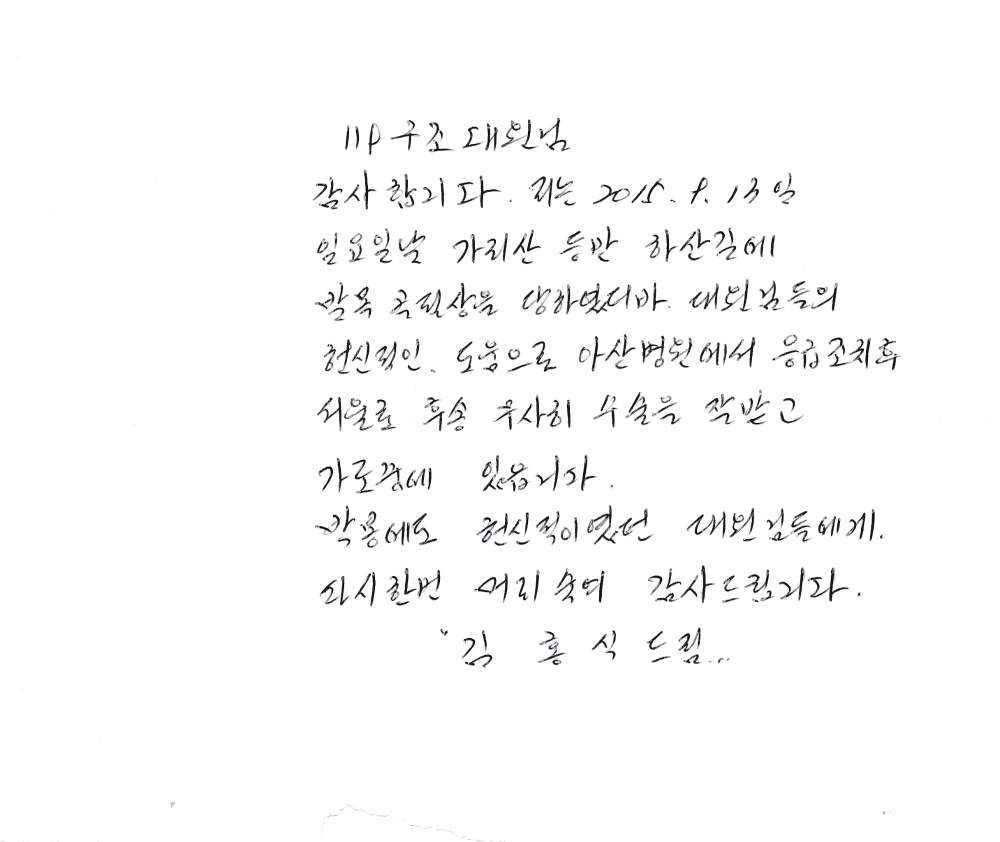 119구조대원님
감사합니다. 저는 2015. 9. 13일
일요일날 가리산 등반 하산길에
발목 골절상을 당하였던바. 대원님들의
헌신적인. 도움으로 아산병원에서 응급조치후
서울로 후송 무사히 수술을 잘받고
있읍니다.
헌신적이였던 대원님들에게.
다시한번 머리숙여 감사드립니다.
"김 홍 식 드림...